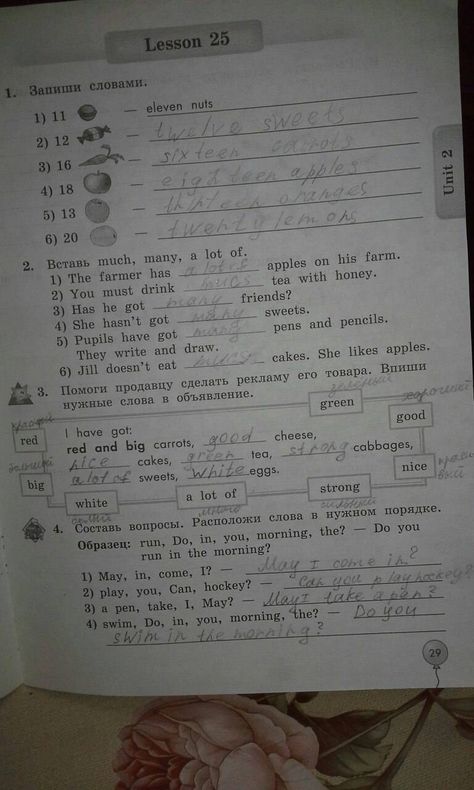 Lesson 25
1. Запиши словами.
1) 11 — eleven nuts
2) 12 — twelve sweets
3) 16 — sixteen carrots
4) 18 — eighteen apples
5) 13 — thirteen oranges
6) 20 — twenty lemons
Unit 2
2. Вставь much, many, a lot of.
1) The farmer has a lot of apples on his farm.
2) You must drink tea with honey.
3) Has he got many friends?
4) She hasn't got many sweets.
5) Pupils have got many pens and pencils.
They write and draw.
6) Jill doesn't eat cakes. She likes apples.
3. Помоги продавцу сделать рекламу его товара. Впиши
нужные слова в объявление.
зелёный
green
хороший
good
red
I have got:
red and big carrots, good cheese,
nice cakes, green tea, strong cabbages,
a lot of sweets, white eggs.
big
nice
white
a lot of
много
strong
4. Составь вопросы. Расположи слова в нужном порядке.
Образец: run, Do, in, you, morning, the? — Do you
run in the morning?
1) May, in, come, I? — May I come in?
2) play, you, Can, hockey? — Can you play hockey?
3) a pen, take, I, May? — May I take a pen?
4) swim, Do, in, you, morning, the? — Do you
swim in the morning?
29